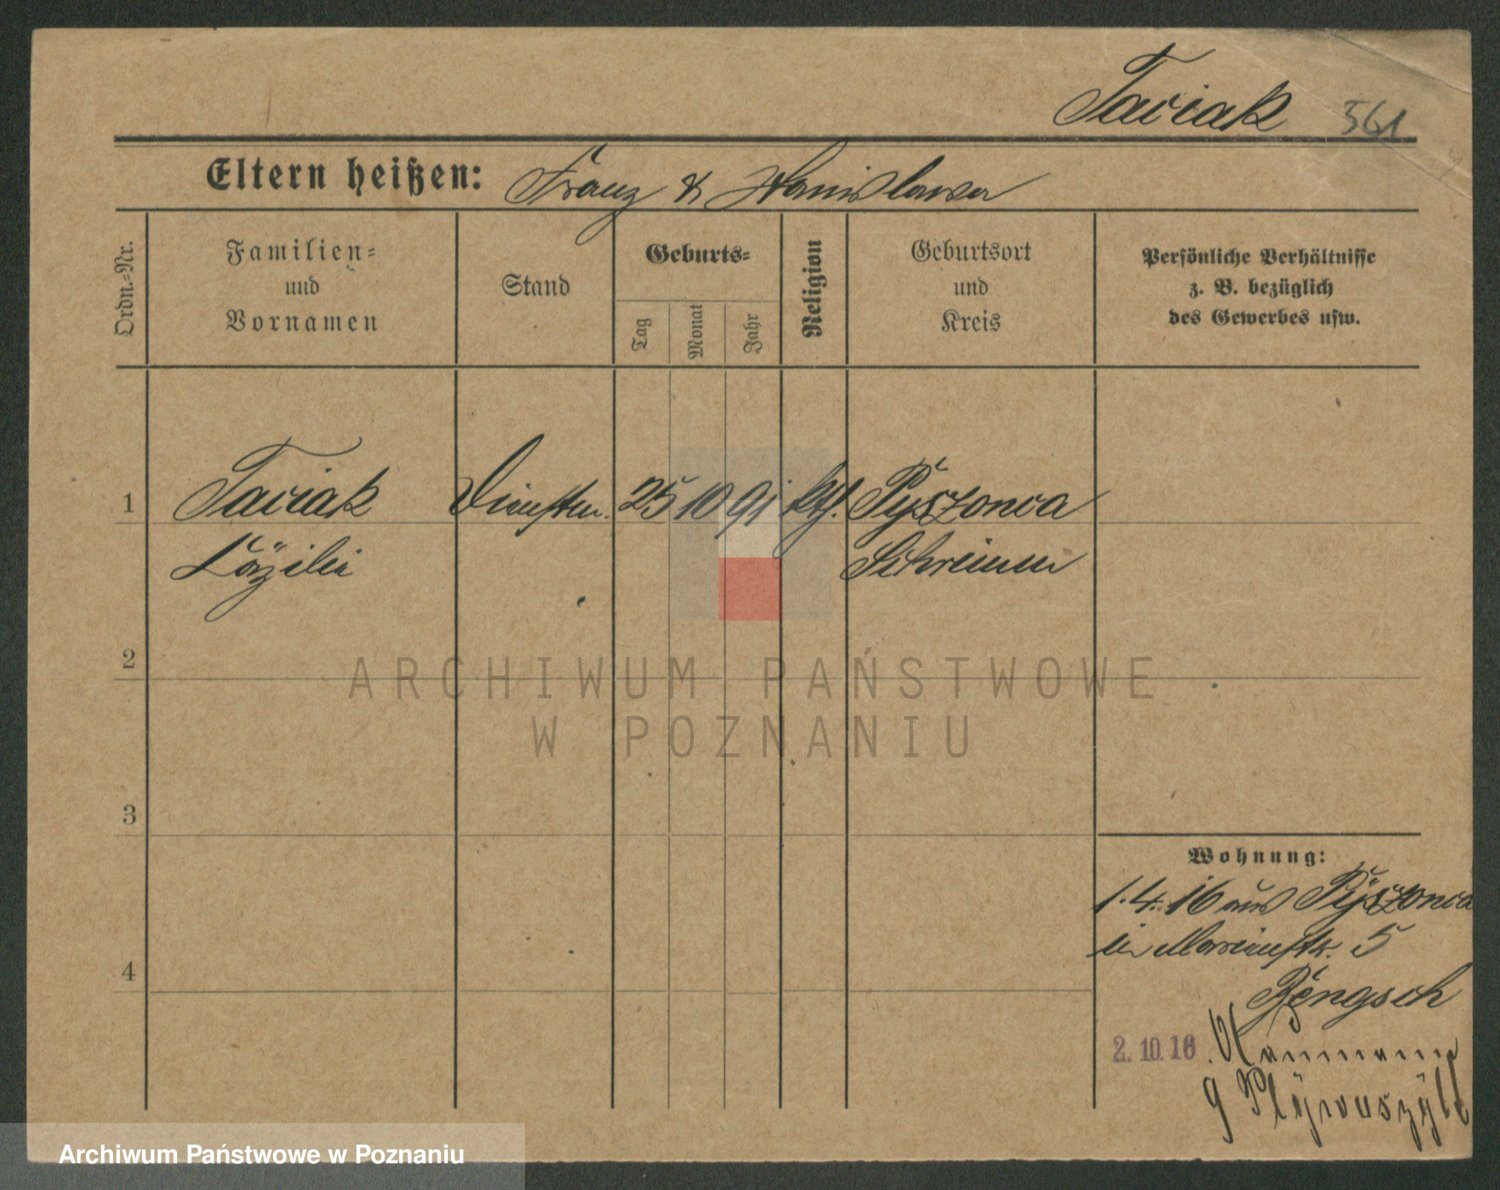 Taciak 561
Eltern heißen: Franz & Stanislawa
Ordn.-Nr.
Familien- und Vornamen
Stand
Geburts-
Tag
Monat
Jahr
Religion
Geburtsort und Kreis
Persönliche Verhältnisse
z. B. bezüglich
des Gewerbes usw.
1 Taciak Dienstm. 25 10 91 kth. Pyszonca
Cäzilie Schrimm
2
3
4
Wohnung:
1.4.16 aus Pyszonca
in 5
2.10.16
ARCHIWUM PAŃSTWOWE
W POZNANIU
Archiwum Państwowe w Poznaniu